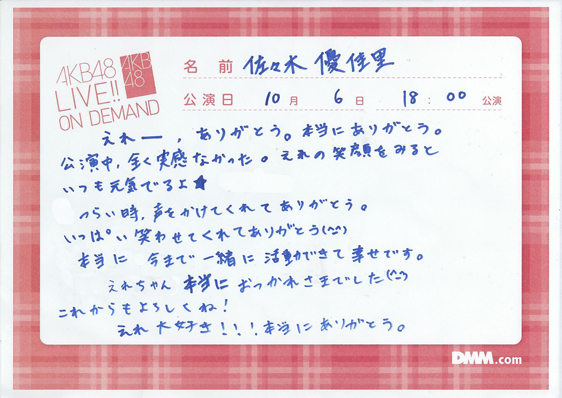 AKB48
LIVE!!
ON DEMAND
AKB
48
名前 佐々木 優佳里
公演日 10月 6日 18:00 公演
えれー、ありがとう。本当にありがとう。
公演中、全く実感なかった。えれの笑顔をみると
いつも元気でるよ★
つらい時、声をかけてくれてありがとう。
いっぱい笑わせてくれてありがとう(^^)
本当に 今まで一緒に活動できて幸せです。
えれちゃん 本当におつかれさまでした(^^)
これからもよろしくね!
えれ大好き!!!本当にありがとう。
DMM.com